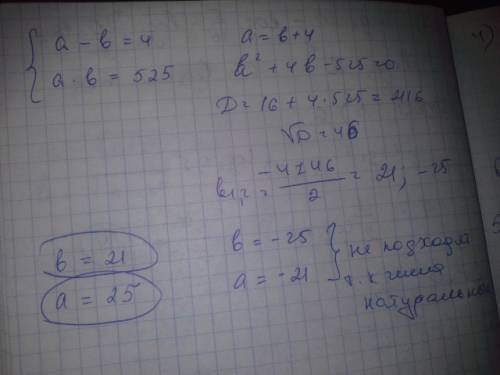 a - b = 4
a · b = 525
a = b + 4
b² + 4b - 525 = 0
D = 16 + 4·525 = 2116
√D = 46
b₁,₂ = (-4 ± 46) / 2 = 21, -25
b = -25
a = -21
не подходят
т. к числа
натуральные
b = 21
a = 25
4)